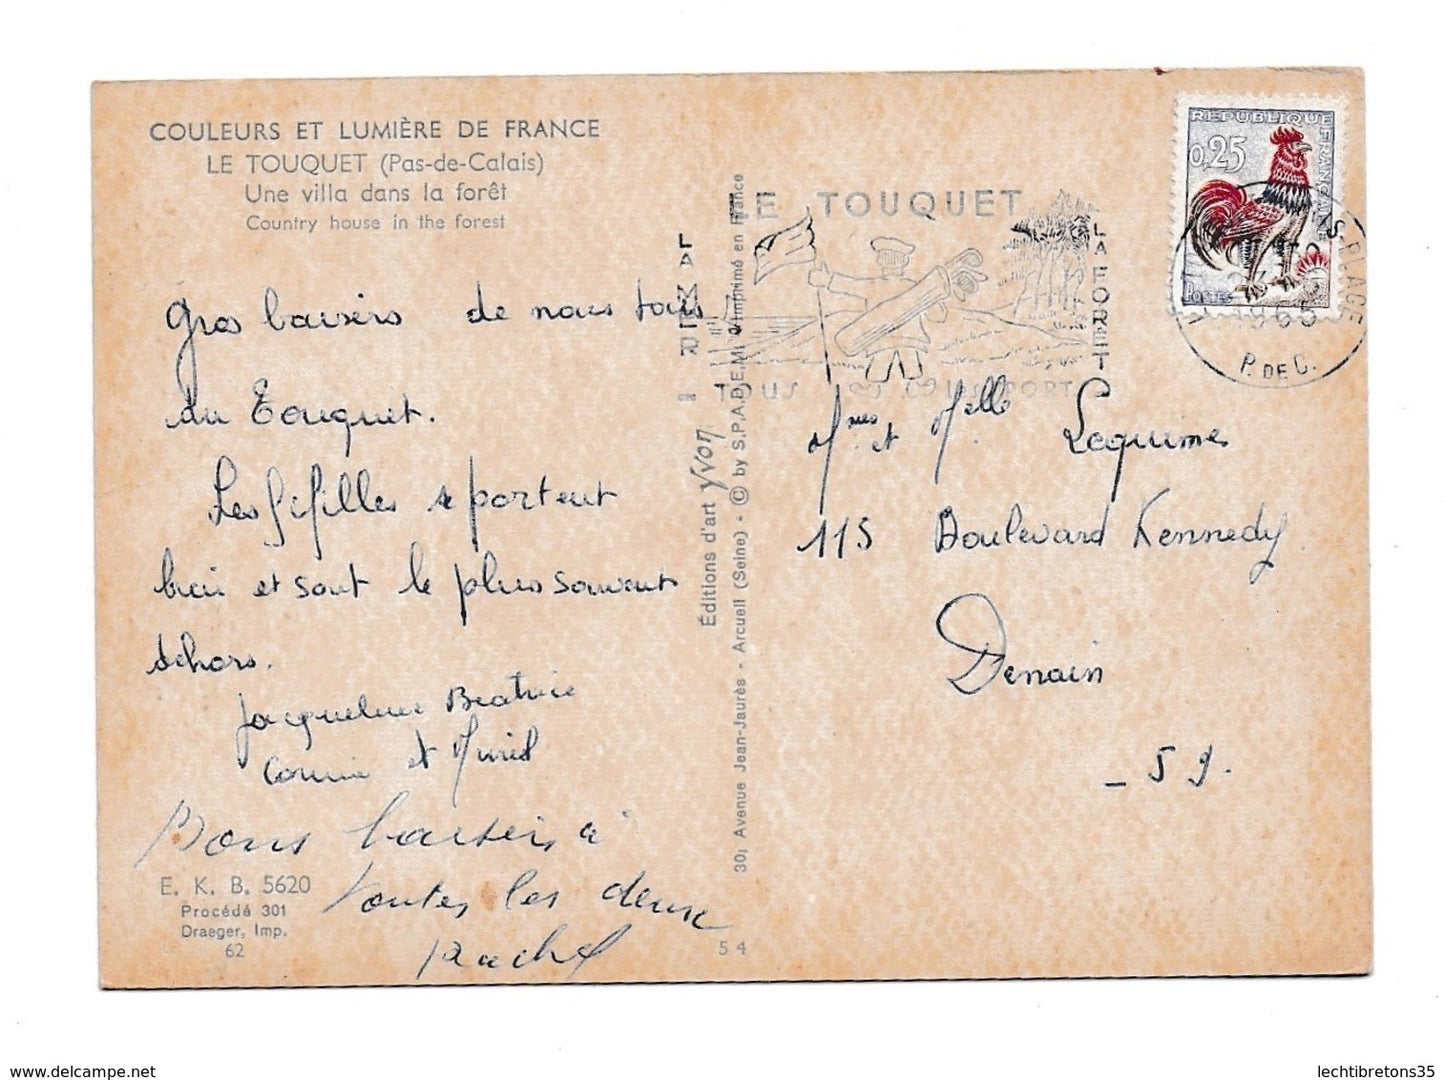 COULEURS ET LUMIÈRE DE FRANCE
LE TOUQUET (Pas-de-Calais)
Une villa dans la forêt
Country house in the forest
Gros baisers de nous tous
du Touquet.
Les fifilles se portent
bien et sont le plus souvent
dehors.
Jacqueline Beatrice
Corinne et Muriel
Bons baisers à
toutes les deux
Rachel
E. K. B. 5620
Procédé 301
Draeger, Imp.
62
Éditions d'art yvon
30, Avenue Jean-Jaurès - Arcueil (Seine) - © by S.P.A.D.E.M. Imprimé en France
54
LE TOUQUET
LA MER
LA FORET
TOUS
SPORT
REPUBLIQUE FRANÇAISE
0,25
POSTES
PLAGE
1965
P. DE C.
Mmes et Melle Lequime
115 Boulevard Kennedy
Denain
- 59.
delcampe.net
lechtibretons35